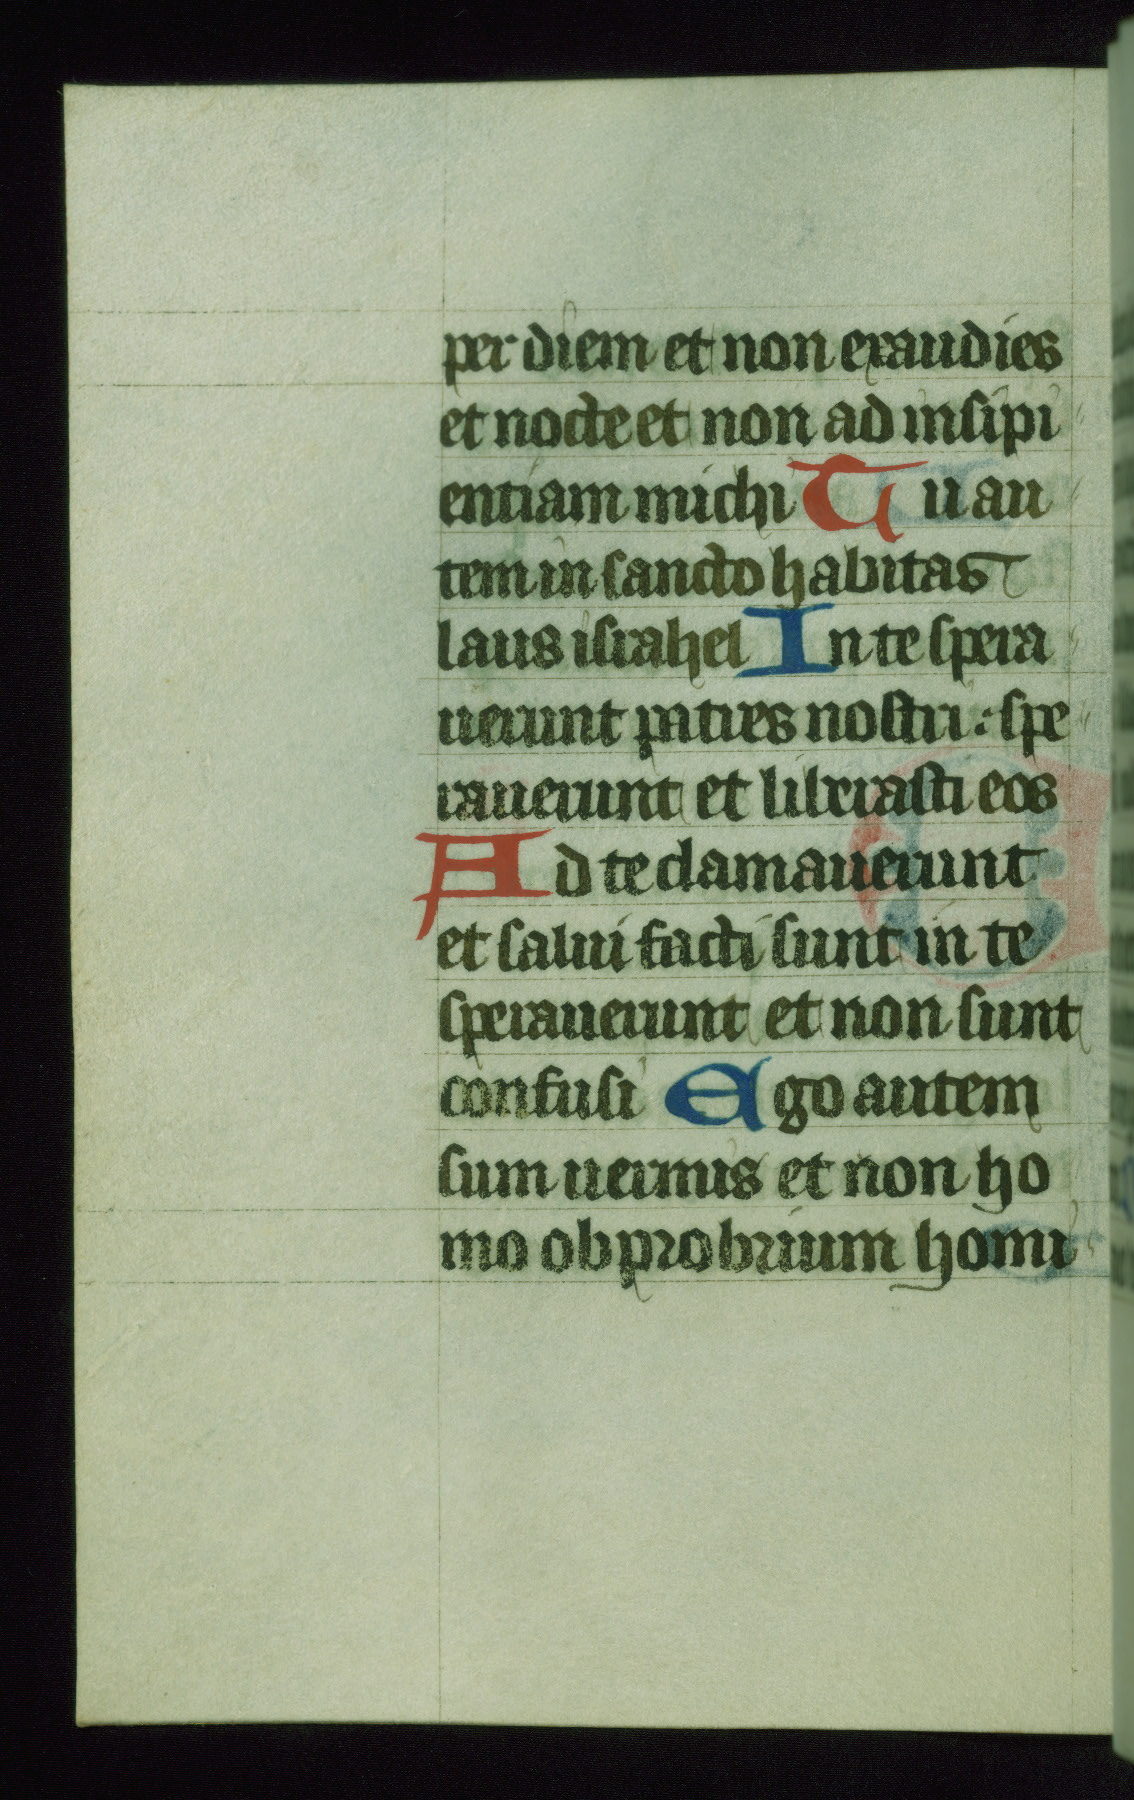 per diem et non exaudies
et nocte et non ad insipi
entiam michi Tu au
tem in sancto habitas
laus israhel In te spera
uerunt patres nostri : spe
rauerunt et liberasti eos
Ad te clamauerunt
et salui facti sunt in te
sperauerunt et non sunt
confusi Ego autem
sum uermis et non ho
mo obprobrium homi